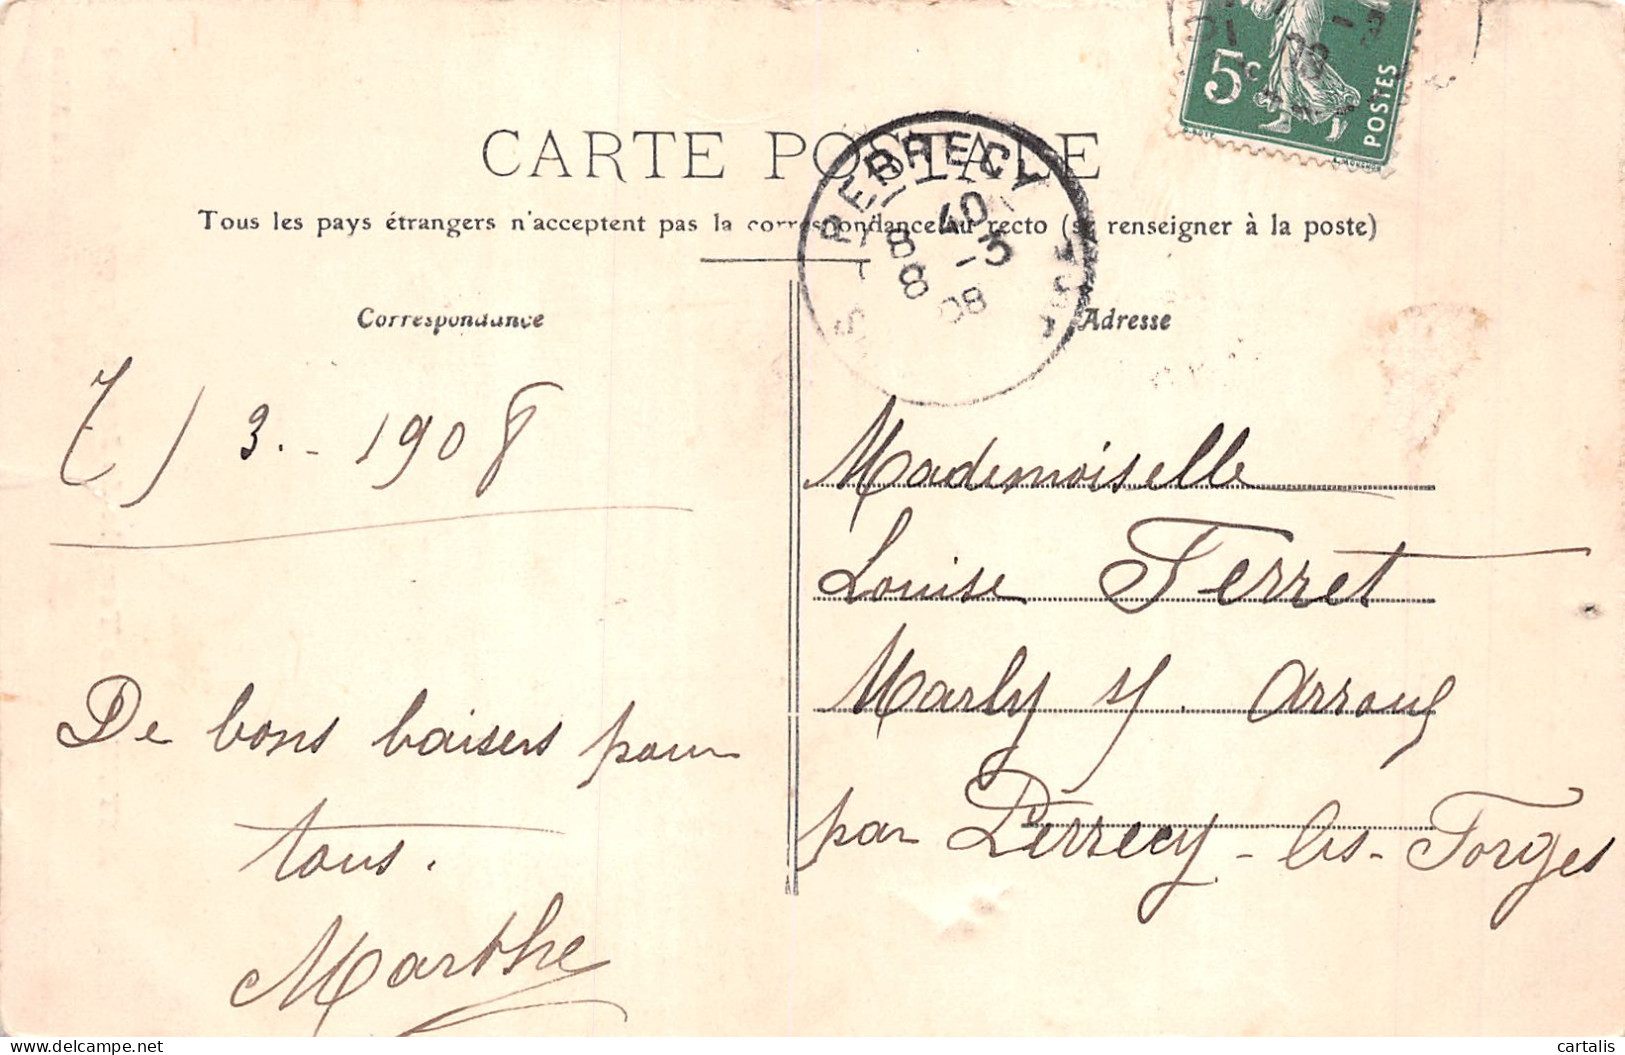 5c
POSTES
CARTE POSTALE
PERRECY
8 40
8 -3
08
Tous les pays étrangers n'acceptent pas la correspondance au recto (se renseigner à la poste)
Correspondance
7/3.-1908
De bons baisers pour
tous.
Marthe
Adresse
Mademoiselle
Louise Ferret
Marly s/. Arroux
par Perrecy-les-Forges
cartalis